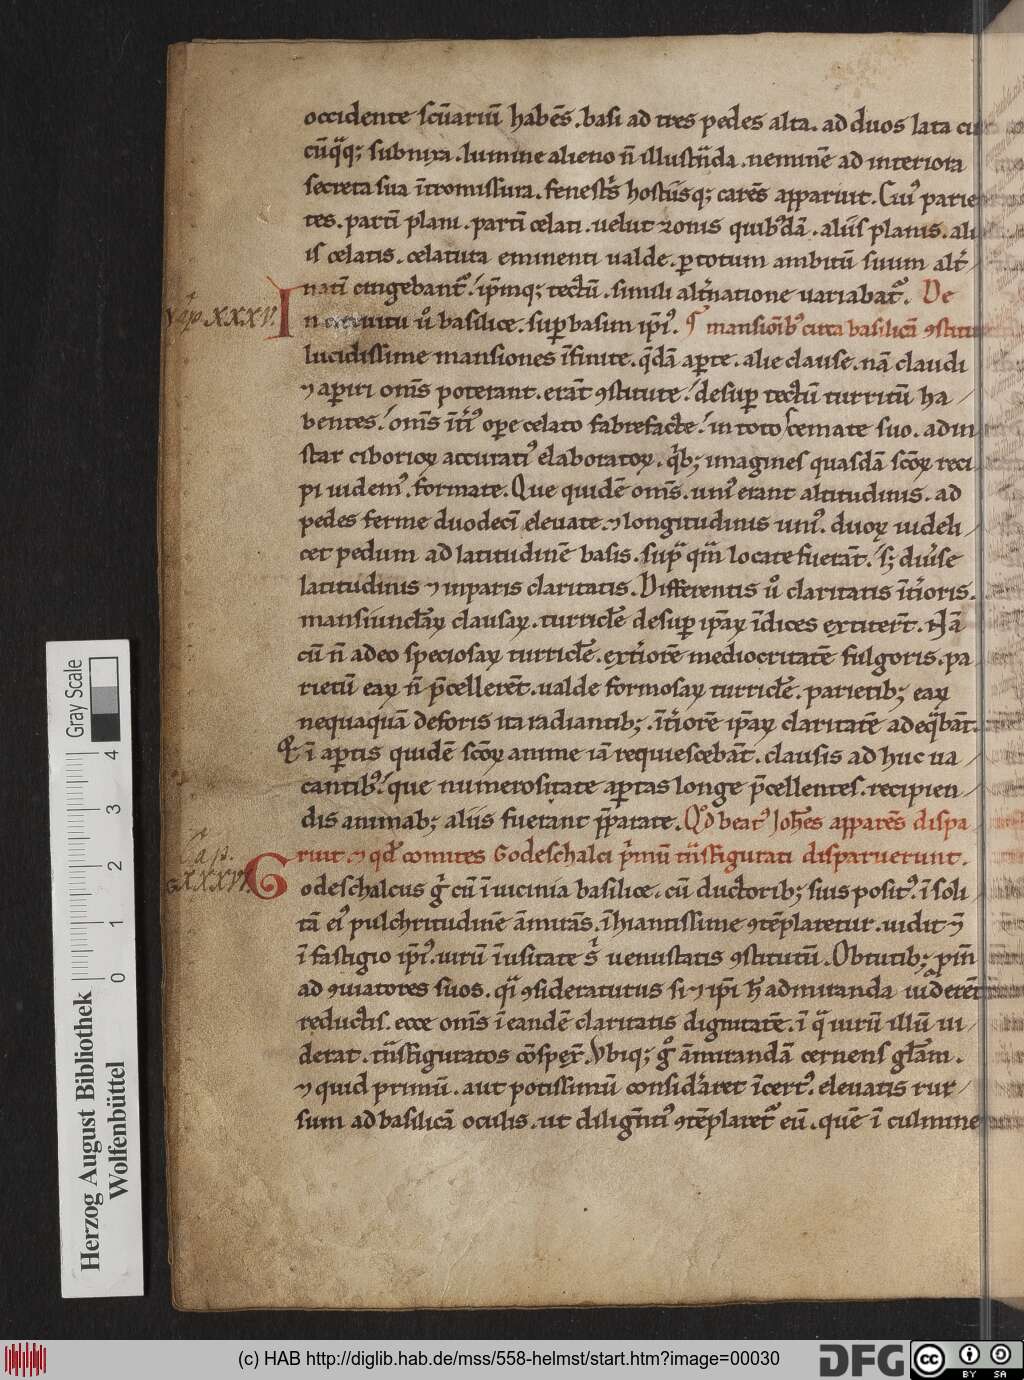 occidente scūariū habēs. basi ad tres pedes alta. ad duos lata
cūq̄q; subnixa. lumine alieno n̄ illustn̄da. neminē ad interiora
secreta sua ītromissura. fenestˢ hostiisq; carēs apparuit. Cuiꝰ parie
tes. partī plani. partī celati. uelut zonis quibꝰdā. aliis planis. ali
is celatis. celatura eminenti ualde. ꝑ totum ambitū suum altˢ
natī cingebantᷣ. ip̄mq; tectū. simili altˢnatione uariabatᷣ. De
Cap XXXV. In circuitu ů basilice. suꝑ basim ip̄iꝰ. mansiōibꝰ circa basilicā ꝯstitu
lucidissime mansiones īfinite. q̄dā aꝑte. alie clause. nā claudi
⁊ aꝑiri om̄s poterant. erāt ꝯstitute. desuꝑ tectū turritū ha
bentes. om̄s īt̄iꝰ oꝑe celato fabrefacte. in toto scemate suo. ad in
star ciborioꝝ accuratiꝰ elaboratoꝝ. qͥb; imagines quasdā sc̄oꝝ reci
pi uidemꝰ. formate. Que quidē om̄s. uniꝰ erant altitudinis. ad
pedes ferme duodecī eleuate. ⁊ longitudinis uniꝰ. duoꝝ uideli
cet pedum ad latitudinē basis. supͣ qm̄ locate fuerāt. s; diuˢse
latitudinis ⁊ inparis claritatis. Differentis ů claritatis īt̄ioris.
mansiunclaꝝ clausaꝝ. turricle desuꝑ ip̄aꝝ īdices extitert̄. Nā
cū n̄ adeo speciosaꝝ turricle. ext̄iorē mediocritatē fulgoris. pa
rietū eaꝝ n̄ p̄cellerēt. ualde formosaꝝ turricle. parietib; eaꝝ
nequaquā deforis ita radiantib;. īt̄iorē ip̄aꝝ claritatē adeq̄bāt.
Et ī aꝑtis quidē sc̄oꝝ anime iā requiescebāt. clausis ad huc ua
cantibꝰ. que numerositate aꝑtas longe p̄cellentes. recipien
dis animab; aliis fuerant p̄parate. Qd̄ beatꝰ Joh̄es apparēs dispa
ruit. ⁊ qd̄ comites Godeschalci pͥmū tn̄sfigurati disparuerunt.
Cap. XXXVI. Godeschalcus gͥ cū ī uicinia basilice. cū ductorib; suis positꝰ. ī soli
tā eiꝰ pulchritudinē āmirās. īhiantissime ꝯtēplaretur. uidit ⁊
ī fastigio ip̄iꝰ. uirū īusitate sˢ uenustatis ꝯstitutū. Obtutib; ꝓin̄
ad ꝯuiatores suos. qͣi ꝯsideraturus si ⁊ ip̄i h̄ admiranda uiderēt
reductis. ecce om̄s ī eandē claritatis dignitatē. ī qͣ uirū illū ui
derat. tn̄sfiguratos cōspex̄. Vbiq; gͦ āmirandā cernens gl̄am.
⁊ quid primū. aut potissimū considˢaret īcertꝰ. eleuatis rur
sum ad basilicā oculis. ut dilign̄tiꝰ ꝯtēplaretᷣ eū. quē ī culmine
Herzog August Bibliothek
Wolfenbüttel
Gray Scale
0 1 2 3 4
(c) HAB http://diglib.hab.de/mss/558-helmst/start.htm?image=00030
DFG
cc BY SA